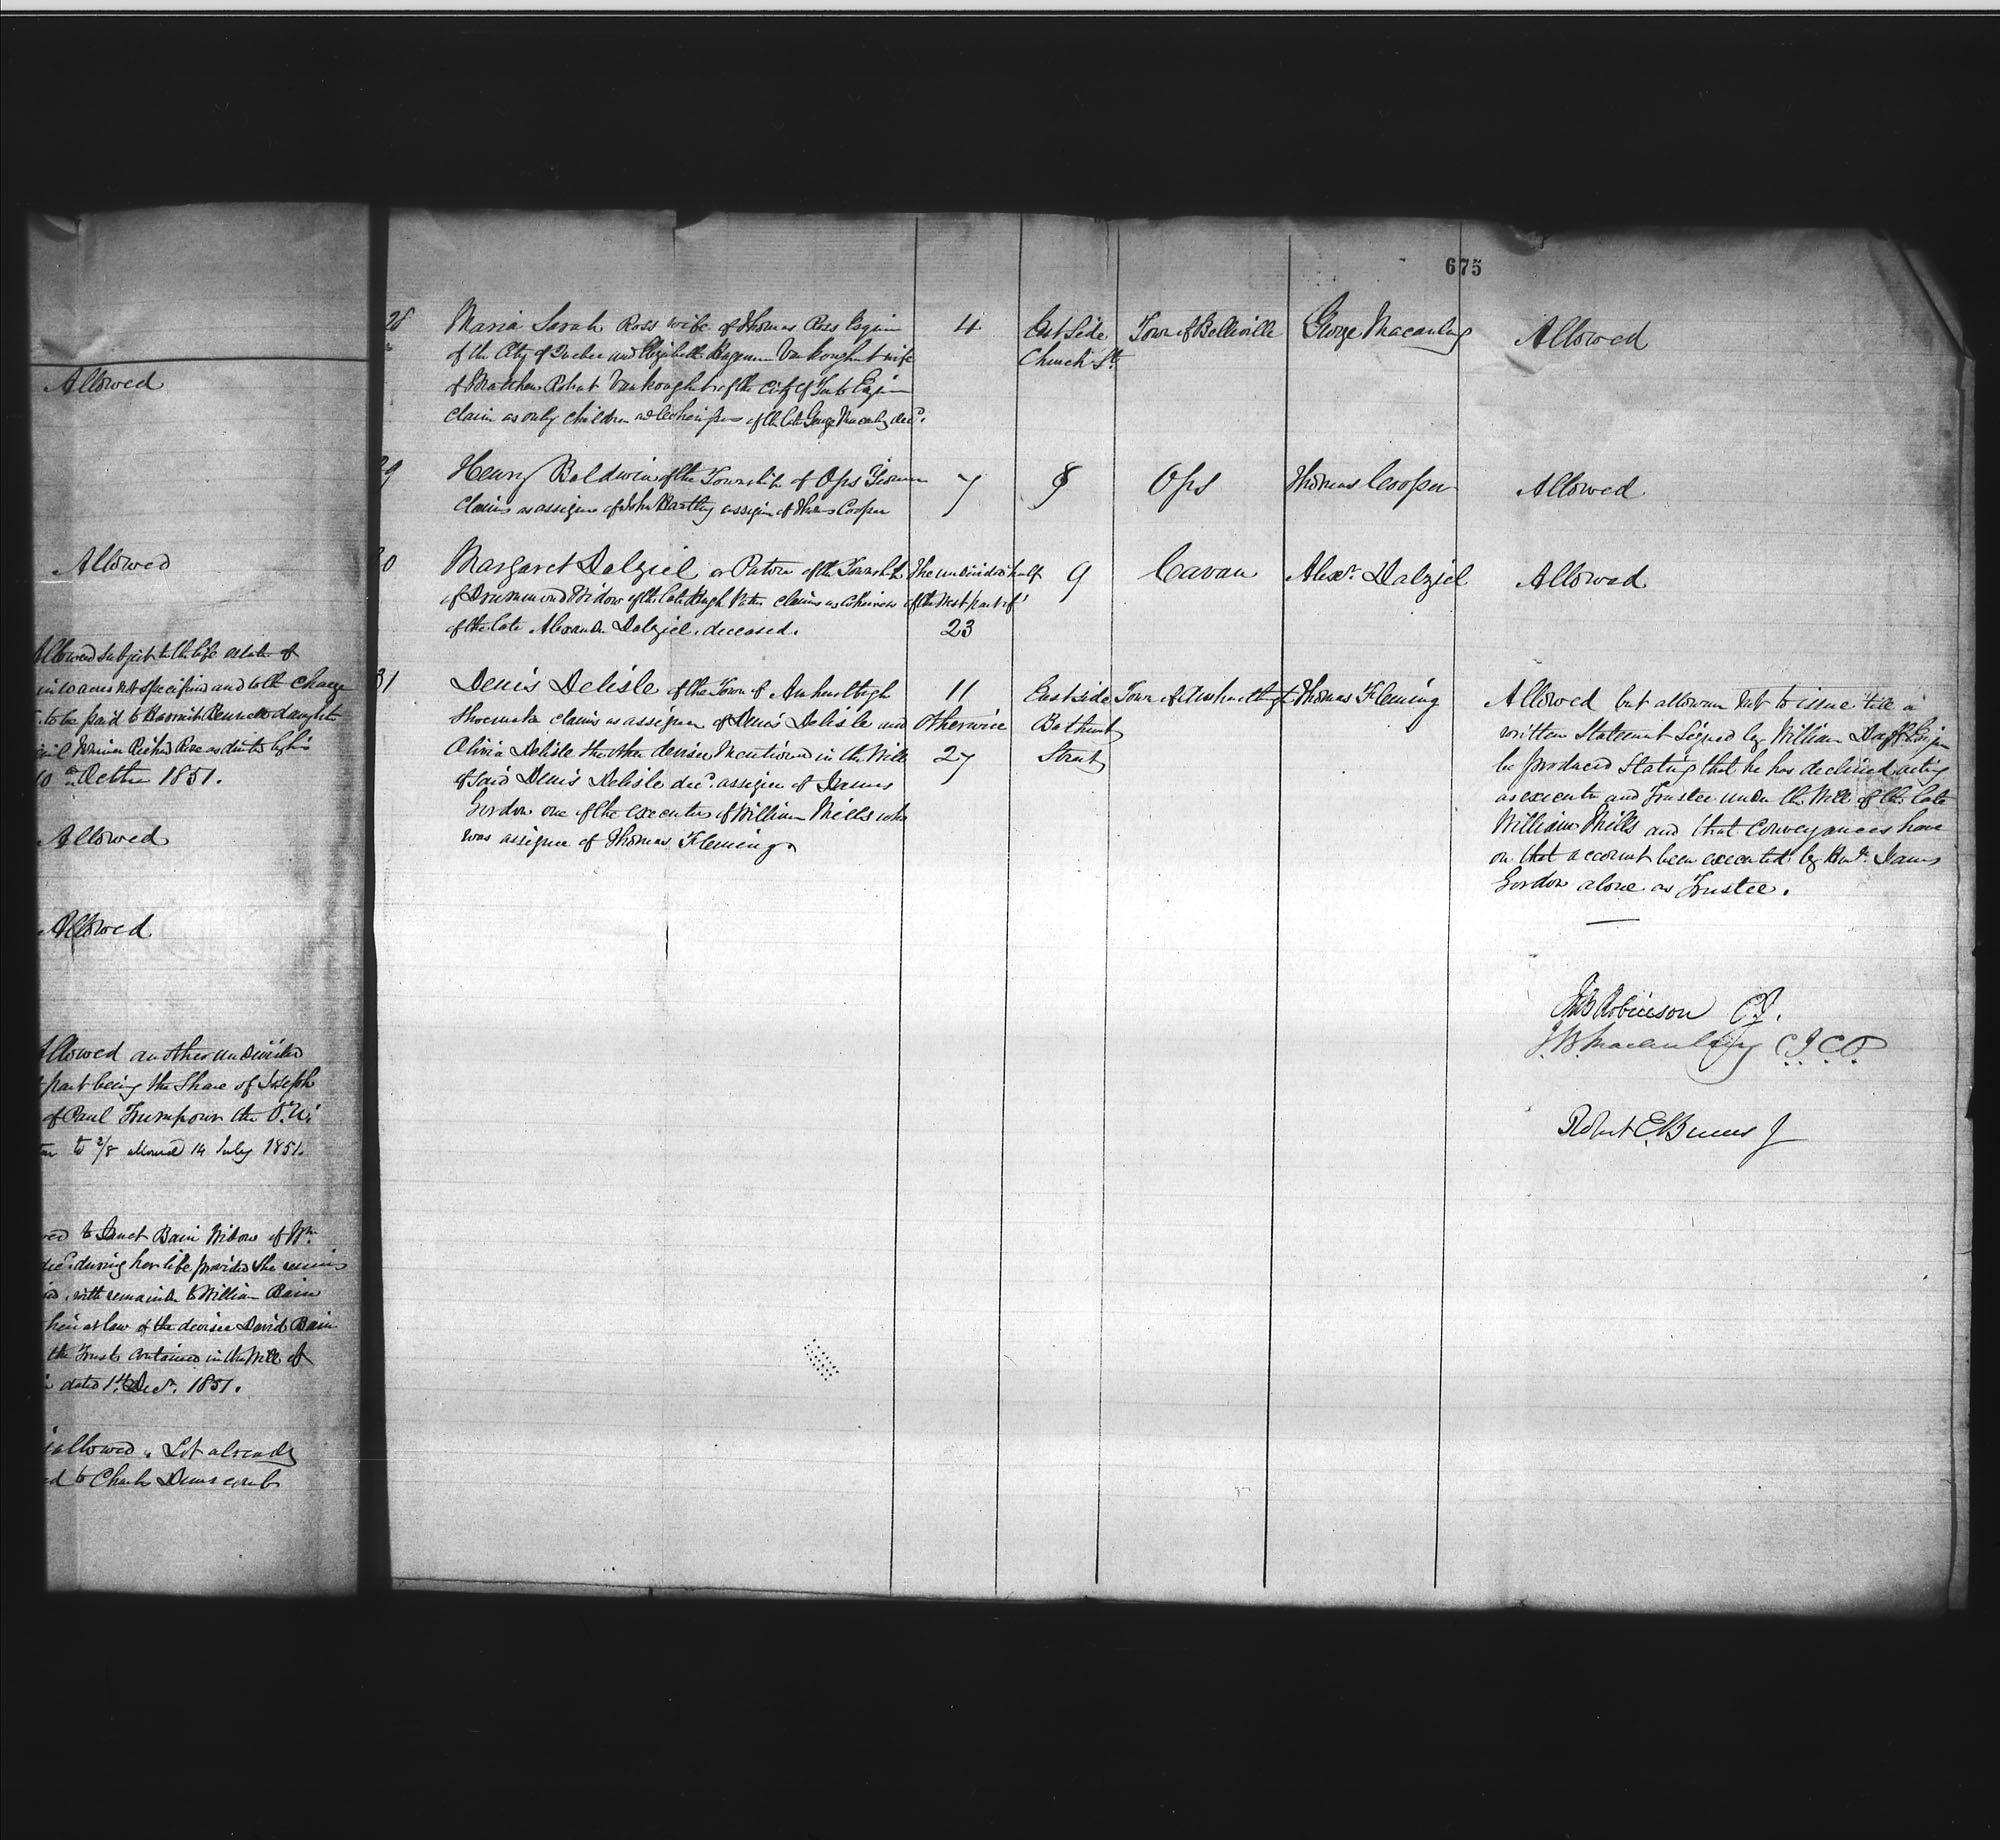 Allowed
Allowed
Allowed subject to the life estate of
acres not specified and to the charge
to be paid to Hannah Bennett daughter
10th October 1851.
Allowed
Allowed
Allowed another undivided
part being the Share of Joseph
of Paul Trumpour the
to 2/8 allowed 14 July 1851.
to Janet Bain Widow of Wm.
decd. during her life provided she remains
with remainder to William Bain
heir at law of the devisee David Bain
the Trusts contained in the Will of
dated 1st Decr. 1851.
allowed. Lot already
to Charles Dunscomb
675
28 Maria Sarah Ross wife of Thomas Ross Esquire 4 East Side Town of Belleville George Macaulay Allowed
of the City of Quebec and Elizabeth Hagerman Vankoughnet wife Church St.
of Matthew Robert Vankoughnet of the City of Esquire
claim as only children and coheiresses of the late George Macaulay decd.
29 Henry Baldwin of the Township of Ops Yeoman 7 8 Ops Thomas Cooper Allowed
claims as assignee of John Bartley assignee of Thomas Cooper
30 Margaret Dalziel or Paton of the Township The undivided half 9 Cavan Alexr. Dalziel Allowed
of Drummond Widow of the late Hugh Paton claims as coheiress of the West part of
of the late Alexander Dalziel deceased. 23
31 Denis Delisle of the Town of Amherstburgh 11 East side Town of Amherstburgh Thomas Fleming Allowed but allowance not to issue till a
Shoemaker claims as assignee of Denis Delisle and Otherwise Bathurst written Statement Signed by William Duff Esquire
Olivia Delisle the other devisee mentioned in the Will 27 Street be produced stating that he has declined acting
of said Denis Delisle decd. assignee of James as executor and Trustee under the Will of the late
Gordon one of the executors of William Mills who William Mills and that Conveyances have
was assignee of Thomas Fleming on that account been executed by James
Gordon alone as Trustee.
Jno B Robinson C.J.
J. B. Macaulay C.J.C.P.
Robert E Burns J